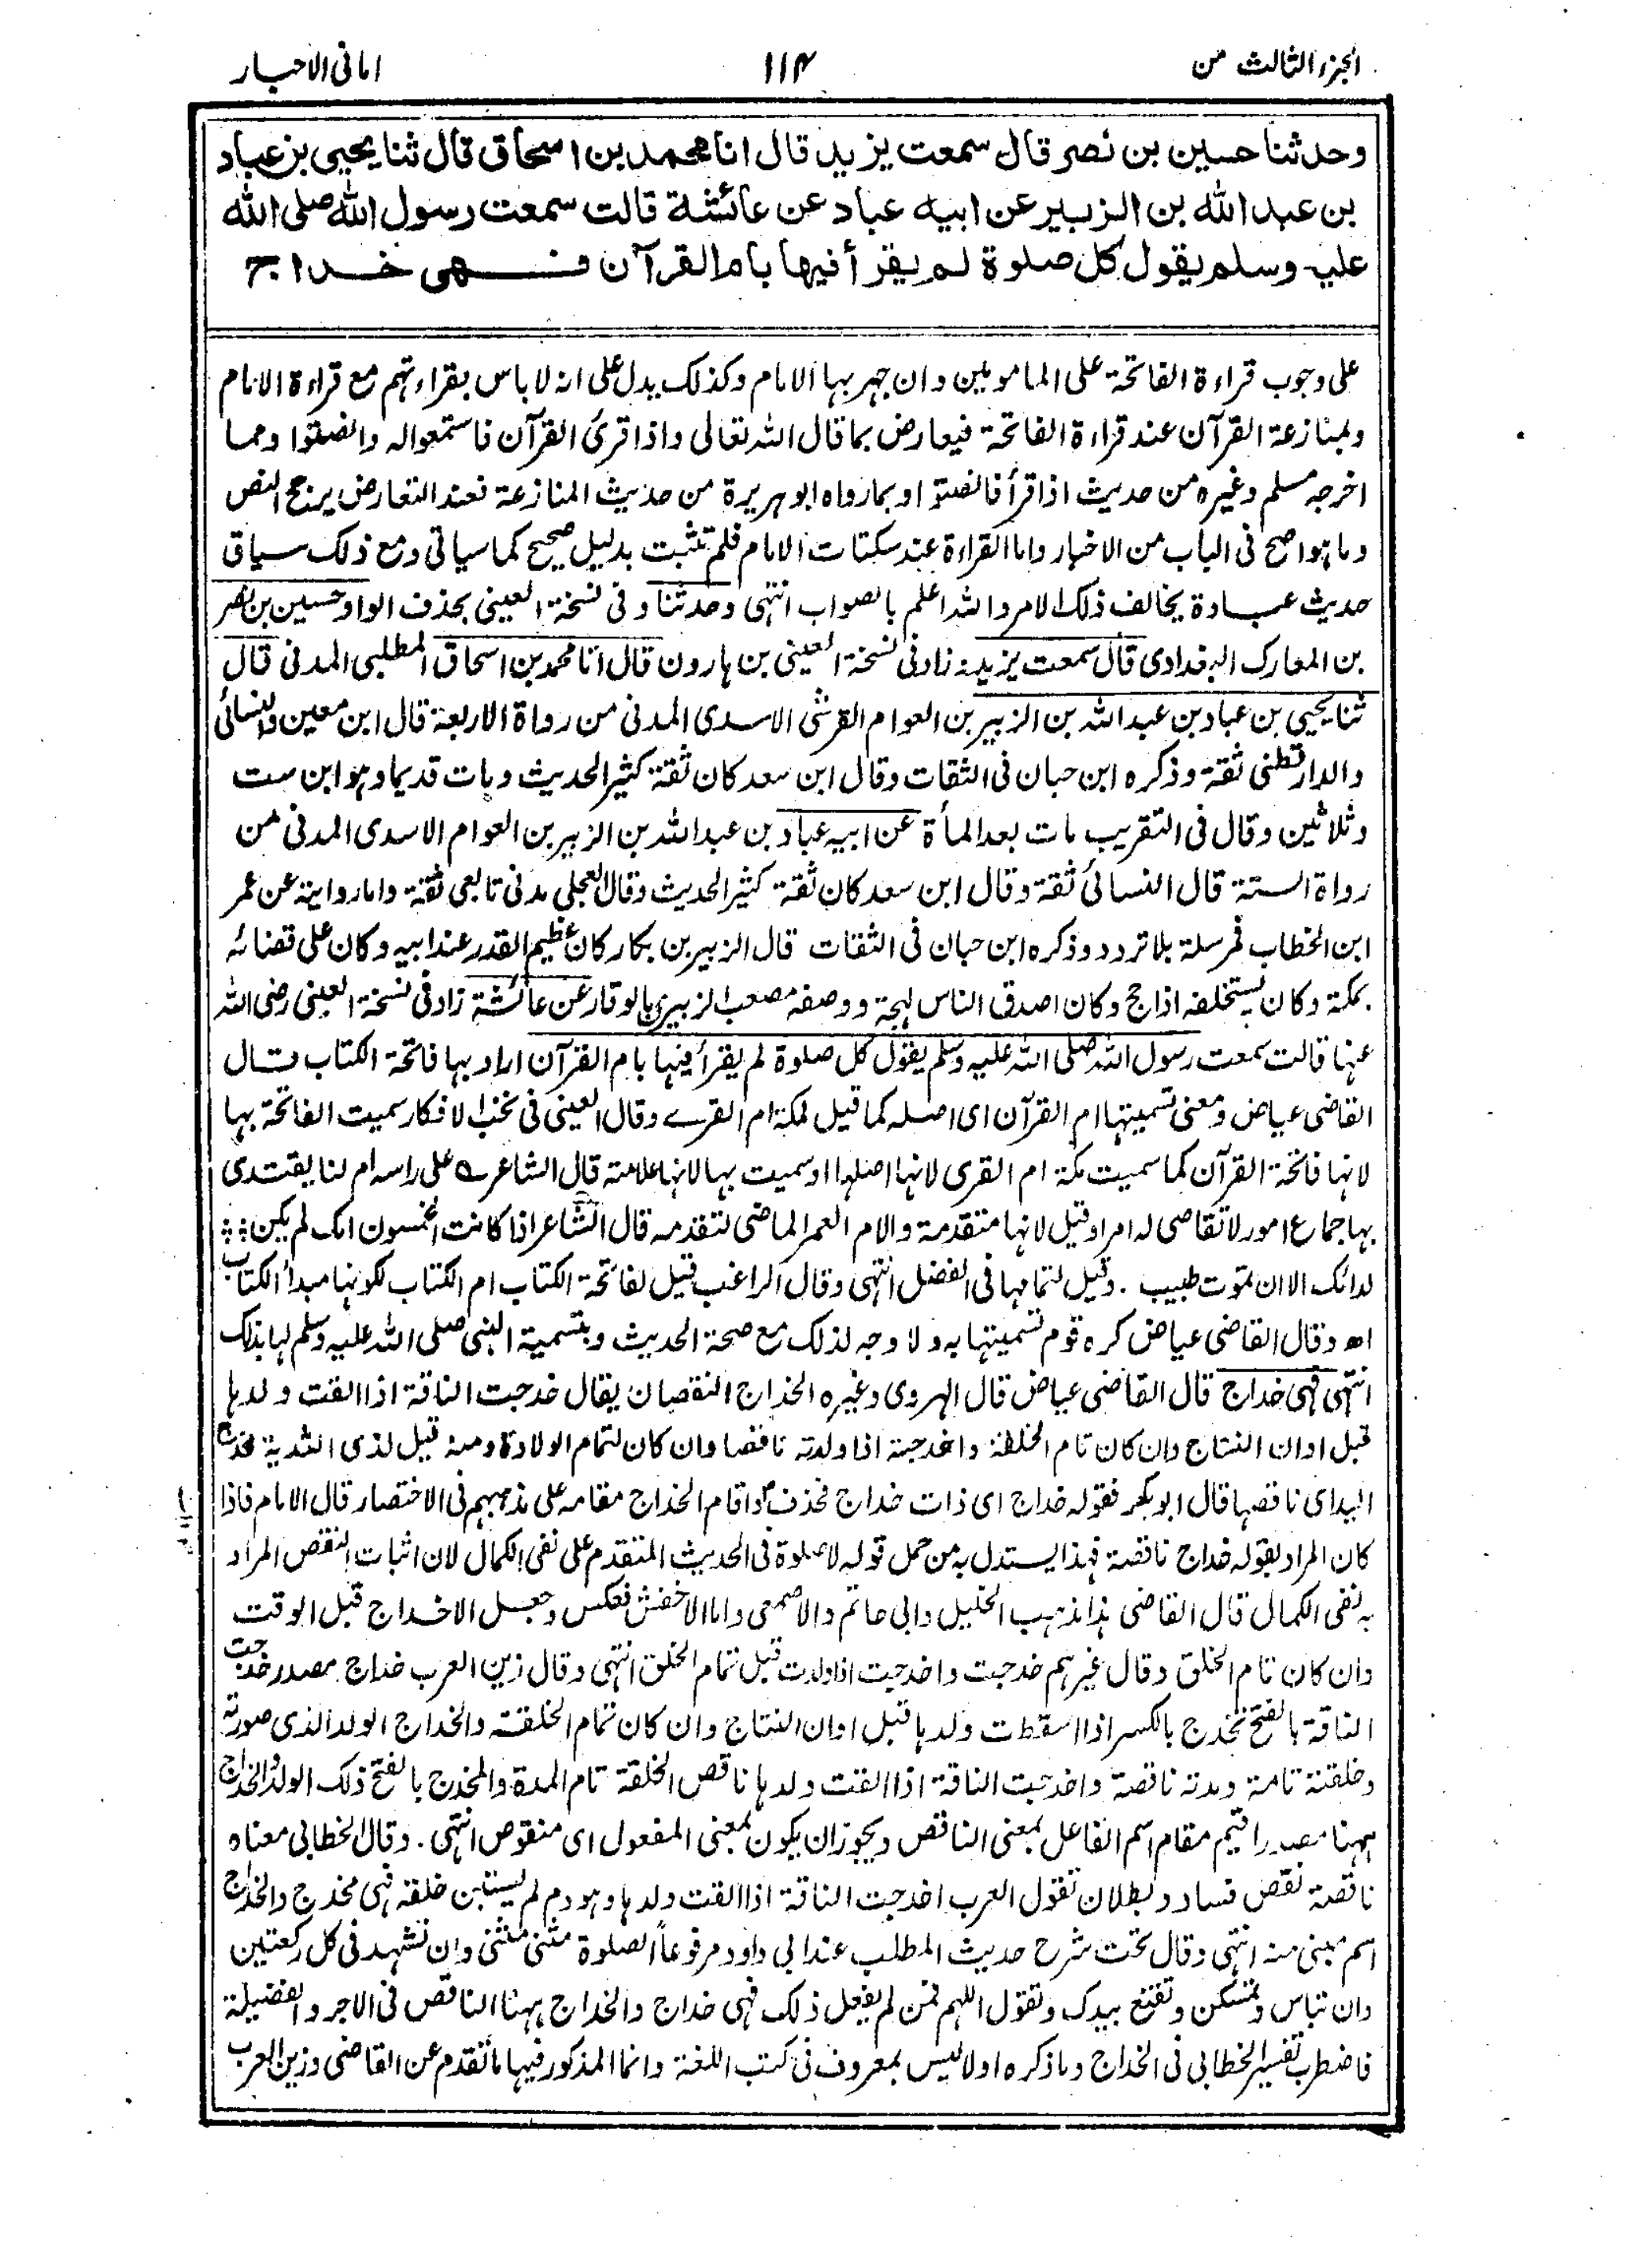 الجزء الثالث من
۱۱۴
امانی الاحبار
وحدثنا حسين بن نصر قال سمعت يزيد قال انا محمد بن اسحاق قال ثنا يحيى بن عباد
بن عبد الله بن الزبير عن ابيه عباد عن عائشة قالت سمعت رسول الله صلى الله
عليه وسلم يقول كل صلوة لم يقرأ فيها بام القرآن فهى خداج
على وجوب قراءة الفاتحة على المامومين وان جهر بها الامام وكذلك يدل على انه لا باس بقراءتهم مع قراءة الامام
ولمنازعة القرآن عند قراءة الفاتحة فيعارض بما قال الله تعالى واذا قرئ القرآن فاستمعوا له وانصتوا ومما
اخرجه مسلم وغيره من حديث اذا قرأ فانصتوا وبما رواه ابو هريرة من حديث المنازعة فعند التعارض يرجح النص
وما هو اصح فى الباب من الاخبار واما القراءة عند سكتات الامام فلم تثبت بدليل صحيح كما سياتى ومع ذلك سياق
حديث عبادة يخالف ذلك الامر والله اعلم بالصواب انتهى وحدثنا وفى نسخة العينى بحذف الواو حسين بن نصر
بن المعارك البغدادى قال سمعت يزيد زاد فى نسخة العينى بن هارون قال انا محمد بن اسحاق المطلبى المدنى قال
ثنا يحيى بن عباد بن عبد الله بن الزبير بن العوام القرشى الاسدى المدنى من رواة الاربعة قال ابن معين والنسائى
والدارقطنى ثقة وذكره ابن حبان فى الثقات وقال ابن سعد كان ثقة كثير الحديث ومات قديما وهو ابن ست
وثلاثين وقال فى التقريب مات بعد المأة عن ابيه عباد بن عبد الله بن الزبير بن العوام الاسدى المدنى من
رواة الستة قال النسائى ثقة وقال ابن سعد كان ثقة كثير الحديث وقال العجلى مدنى تابعى ثقة واما روايته عن عمر
ابن الخطاب فمرسلة بلا تردد وذكره ابن حبان فى الثقات قال الزبير بن بكار كان عظيم القدر عند ابيه وكان على قضائه
بمكة وكان يستخلفه اذا حج وكان اصدق الناس لهجة ووصفه مصعب الزبيرى بالوقار عن عائشة زاد فى نسخة العينى رضى الله
عنها قالت سمعت رسول الله صلى الله عليه وسلم يقول كل صلوة لم يقرأ فيها بام القرآن اراد بها فاتحة الكتاب قال
القاضى عياض ومعنى تسميتها ام القرآن اى اصله كما قيل لمكة ام القرے وقال العينى فى نخب الافكار سميت الفاتحة بها
لانها فاتحة القرآن كما سميت مكة ام القرى لانها اصلها او سميت بها لانها علامة قال الشاعر ؎ على راسه ام لنا يقتدى
بها جماع امور لا تقاصى له امر او قيل لانها متقدمة والام العمر الماضى لتقدمه قال الشاعر اذا كانت الخمسون امك لم يكن
لدائك الا ان تموت طبيب . وقيل لتمامها فى الفضل انتهى وقال الراغب قيل لفاتحة الكتاب ام الكتاب لكونها مبدأ الكتاب
اھ وقال القاضى عياض كره قوم تسميتها به ولا وجه لذلك مع صحة الحديث وبتسمية النبى صلى الله عليه وسلم لها بذلك
انتهى فهى خداج قال القاضى عياض قال الهروى وغيره الخداج النقصان يقال خدجت الناقة اذا القت ولدها
قبل اوان النتاج وان كان تام الخلقة واخدجته اذا ولدته ناقصا وان كان لتمام الولادة ومنه قيل لذى الثدية مخدج
اليد اى ناقصها قال ابو بكر فقوله خداج اى ذات خداج فحذف ذا واقام الخداج مقامه على مذهبهم فى الاختصار قال الامام فاذا
كان المراد بقوله خداج ناقصة فهذا يستدل به من حمل قوله لا صلوة فى الحديث المتقدم على نفى الكمال لان اثبات النقص المراد
به نفى الكمال قال القاضى هذا مذهب الخليل وابى حاتم والاصمعى واما الاخفش فعكس وجعل الاخداج قبل الوقت
وان كان تام الخلق وقال غيرهم خدجت واخدجت اذا ولدت قبل تمام الخلق انتهى وقال زين العرب خداج مصدر خدجت
الناقة بالفتح تخدج بالكسر اذا اسقطت ولدها قبل اوان النتاج وان كان تمام الخلقة والخداج الولد الذى صورته
وخلقته تامة ومدته ناقصة واخدجت الناقة اذا القت ولدها ناقص الخلقة تام المدة والمخدج بالفتح ذلك الولد والخداج
ههنا مصدر اقيم مقام اسم الفاعل بمعنى الناقص ويجوز ان يكون بمعنى المفعول اى منقوص انتهى . وقال الخطابى معناه
ناقصة نقص فساد وبطلان تقول العرب اخدجت الناقة اذا القت ولدها وهو دم لم يستبن خلقه فهى مخدج والخداج
اسم مبنى منه انتهى وقال تحت شرح حديث المطلب عند ابى داود مرفوعاً الصلوة مثنى مثنى وان تشهد فى كل ركعتين
وان تباس وتمسكن وتقنع بيدك وتقول اللهم فمن لم يفعل ذلك فهى خداج والخداج ههنا الناقص فى الاجر والفضيلة
فاضطرب تفسير الخطابى فى الخداج وما ذكره اولا ليس بمعروف فى كتب اللغة وانما المذكور فيها ما تقدم عن القاضى وزين العرب